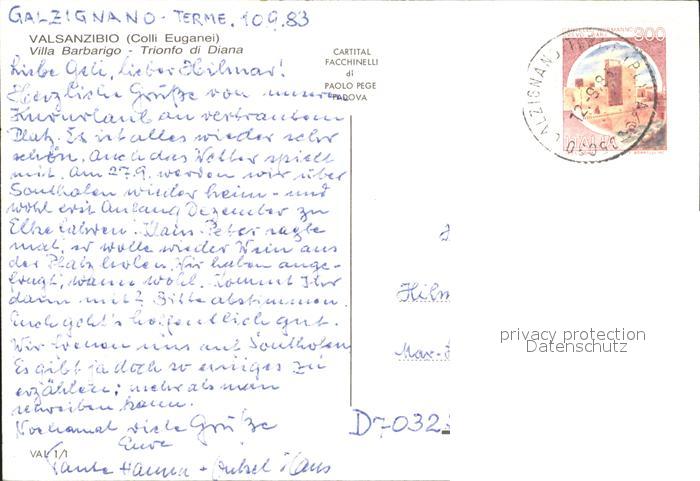 GALZIGNANO-TERME, 10.9.83
VALSANZIBIO (Colli Euganei)
Villa Barbarigo - Trionfo di Diana
CARTITAL
FACCHINELLI
di
PAOLO PEGE
PADOVA
Liebe Geli, lieber Hilmar!
Herzliche Grüße von unserem
Kurerlaub an vertrautem
Platz. Es ist alles wieder sehr
schön. Auch das Wetter spielt
mit. Am 27.9. werden wir über
Sonthofen wieder heim - und
wohl erst Anfang Dezember zu
Elke fahren. Klaus-Peter sagte
mal, er wolle wieder Wein aus
der Pfalz holen. Wir haben ange-
fragt, wann wohl. Kommt Ihr
dann mit? Bitte abstimmen.
Euch geht's hoffentlich gut.
Wir freuen uns auf Sonthofen
Es gibt ja doch so einiges zu
erzählen; mehr als man
schreiben kann.
Nochmal viele Grüße
Eure
Tante Hanna + Onkel Hans
VAL 1/1
300
GALZIGNANO
35030
Hilm
Max-
D-7032
privacy protection
Datenschutz